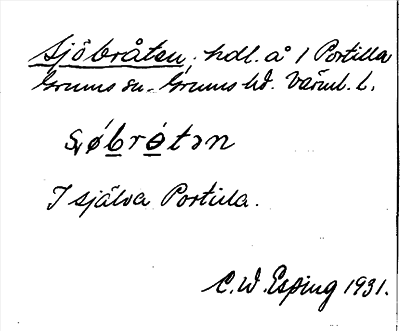 Sjöbråten, hdl. å 1 Portilla
Grums sn. Grums hd. Värml. l.
sjøbrotən
I själva Portilla.
C. W. Esping 1931.